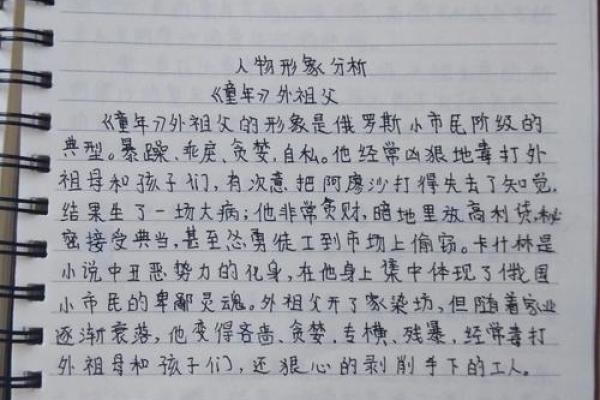 人物形象分析
《童年》外祖父
《童年》外祖父的形象是俄罗斯小市民阶级的
典型。暴躁、乖戾、贪婪、自私。他经常凶狠地毒打外
祖母和孩子们，有次竟把阿廖沙打得失去了知觉，
结果生了一场大病；他非常贪财，暗地里放高利贷，秘
密接受典当，甚至怂勇徒工到市场上偷窃。卡什林是
小说中丑恶势力的化身，在他身上集中体现了俄国
小市民的卑鄙灵魂。外祖父开了家染坊，但随着家业
逐渐衰落，他变得吝啬、贪婪、专横、残暴，经常毒打
外祖母和孩子们，还狠心的剥削手下的工人。